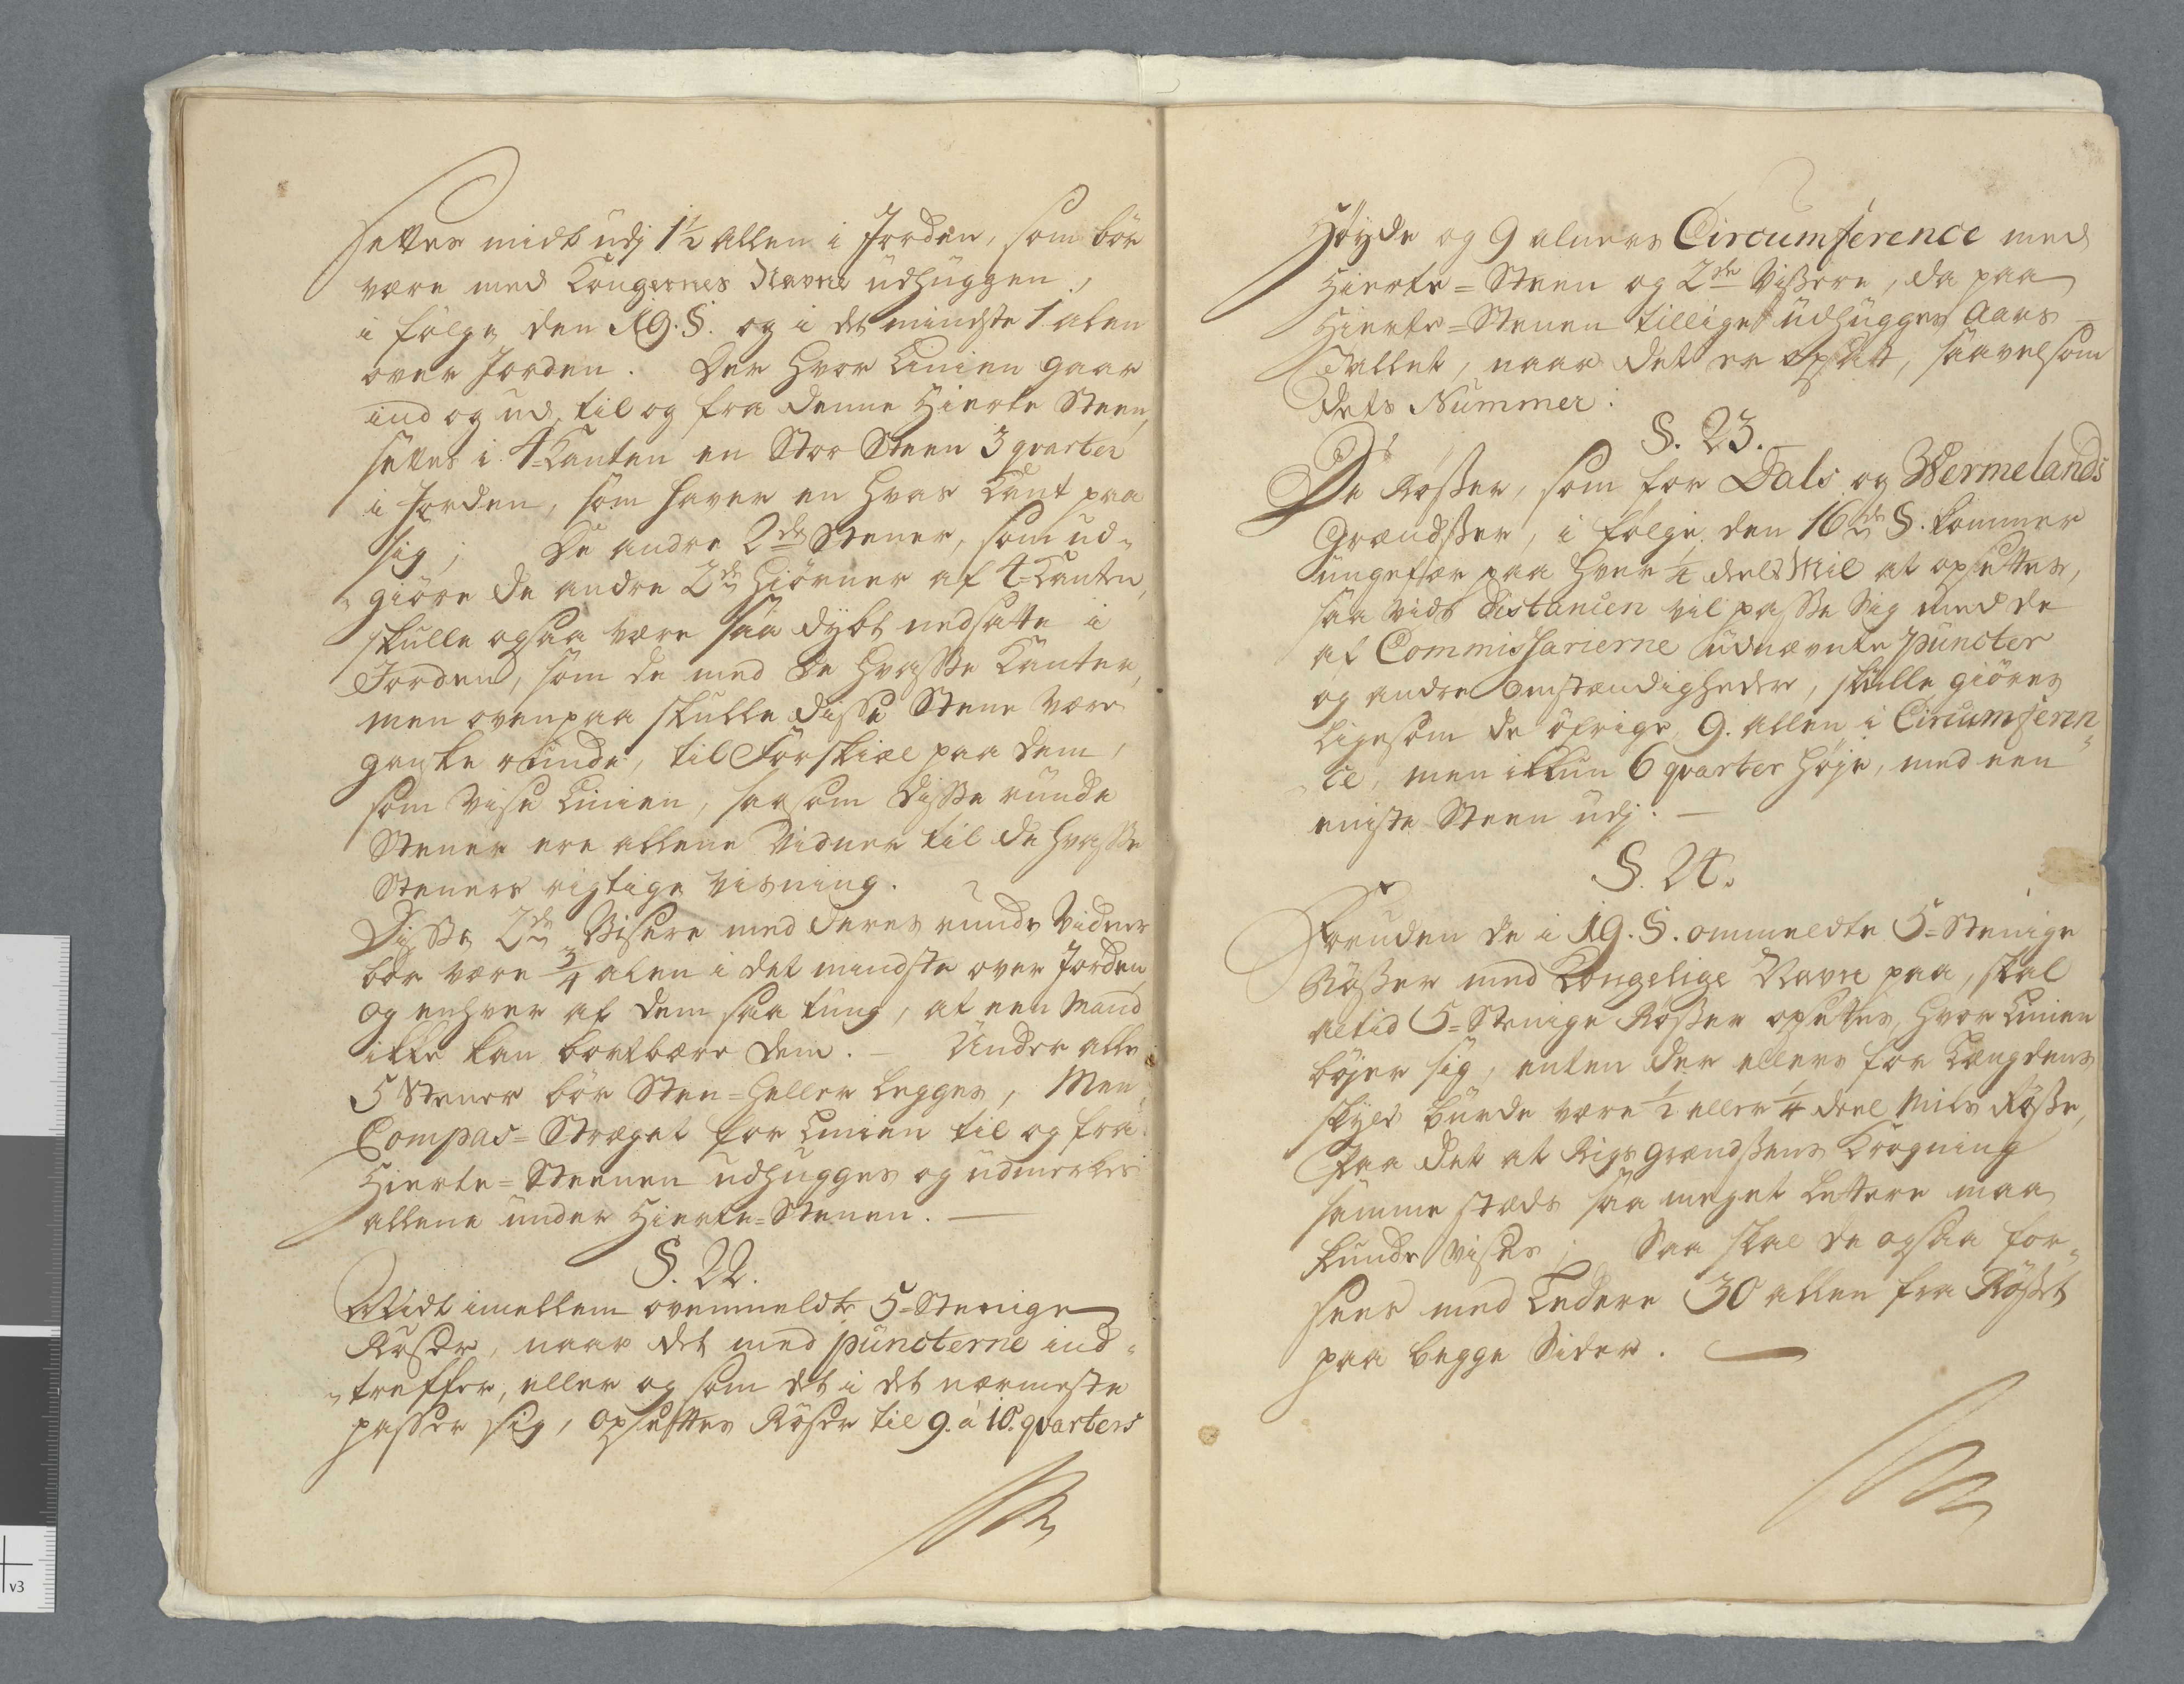 settes midt udj 1½ Allen i Jorden, som bör
være med Kongernes Navne udhuggen,
i fölge den 19. §. og i det mindste 1 alen
over Jorden. Der hvor Linien gaar
ind og ud, til og fra denne Hierte Steen,
settes i 4=Kanten en Stor Steen 3 qvarter
i Jorden, som haver en hvas Kant paa
sig; De andre 2de Stener, som ud=
=giöre de andre 2de Hiörner af 4=Kanten,
skulle ogsaa være saa dybt nedsatte i
Jorden, som de med de hvasse Kanter,
men ovenpaa skulle disse Stene være
gandske runde, til Forskiæl paa dem,
som vise Linien, saasom disse runde
Stener ere allene Vidner til de hvasse
Steners rigtige Visning.
Disse 2de Visere med deres runde Vidner
bör være ¾ alen i det mindste over Jorden,
og enhver af dem saa tung, at een Mand
ikke kan bortbære dem. – Under alle
5 Stener bör Sten=heller legges, Men
Compas=Stræget for Linien til og fra
Hierte=Steenen udhugges og udmerkes
allene under Hierte=Stenen. —
§. 22.
Midt imellem ovenmeldte 5=Stenige
Röser, naar det med puncterne ind=
=treffer, eller og som det i det nærmeste
passer sig, opsettes Röser til 9. à 10. qvarters
Höyde og 9 alners Circumference med
Hierte=Steen og 2de Vissere, da paa
Hierte=Stenen tillige udhugges Aars –
Tallet, naar det er opsatt, saavelsom
dets Nummer:
§. 23.
De Rösser, som for Dals og Wermelands
Grændsser, i fölge den 16de §. kommer
ungefær paa hver ¼ deels Mil at opsettes,
saa vidt Distancen vil passe sig med de
af Commissarierne udnævnte puncter
og andre omstændigheder, skulle giöres
ligesom de öfrige, 9. Allen i Circumferen=
ce, men ikkun 6 qvarter höje, med een
eniste Steen udj. —
§. 24.
Foruden de i 19. §. ommeldte 5=Stenige
Rösser med Kongelige Navne paa, skal
altid 5=Stenige Rösser opsettes, hvor Linien
böjer sig, enten der ellers for Længdens
skyld burde være ½ eller ¼ deel Mils Rösse,
Paa det at Rigs Grændsens Krogning
samme stæds saa meget lettere maa
kunde vises; Saa skal de ogsaa for=
sees med Ledere 30 allen fra Rösset
paa begge Sider. —